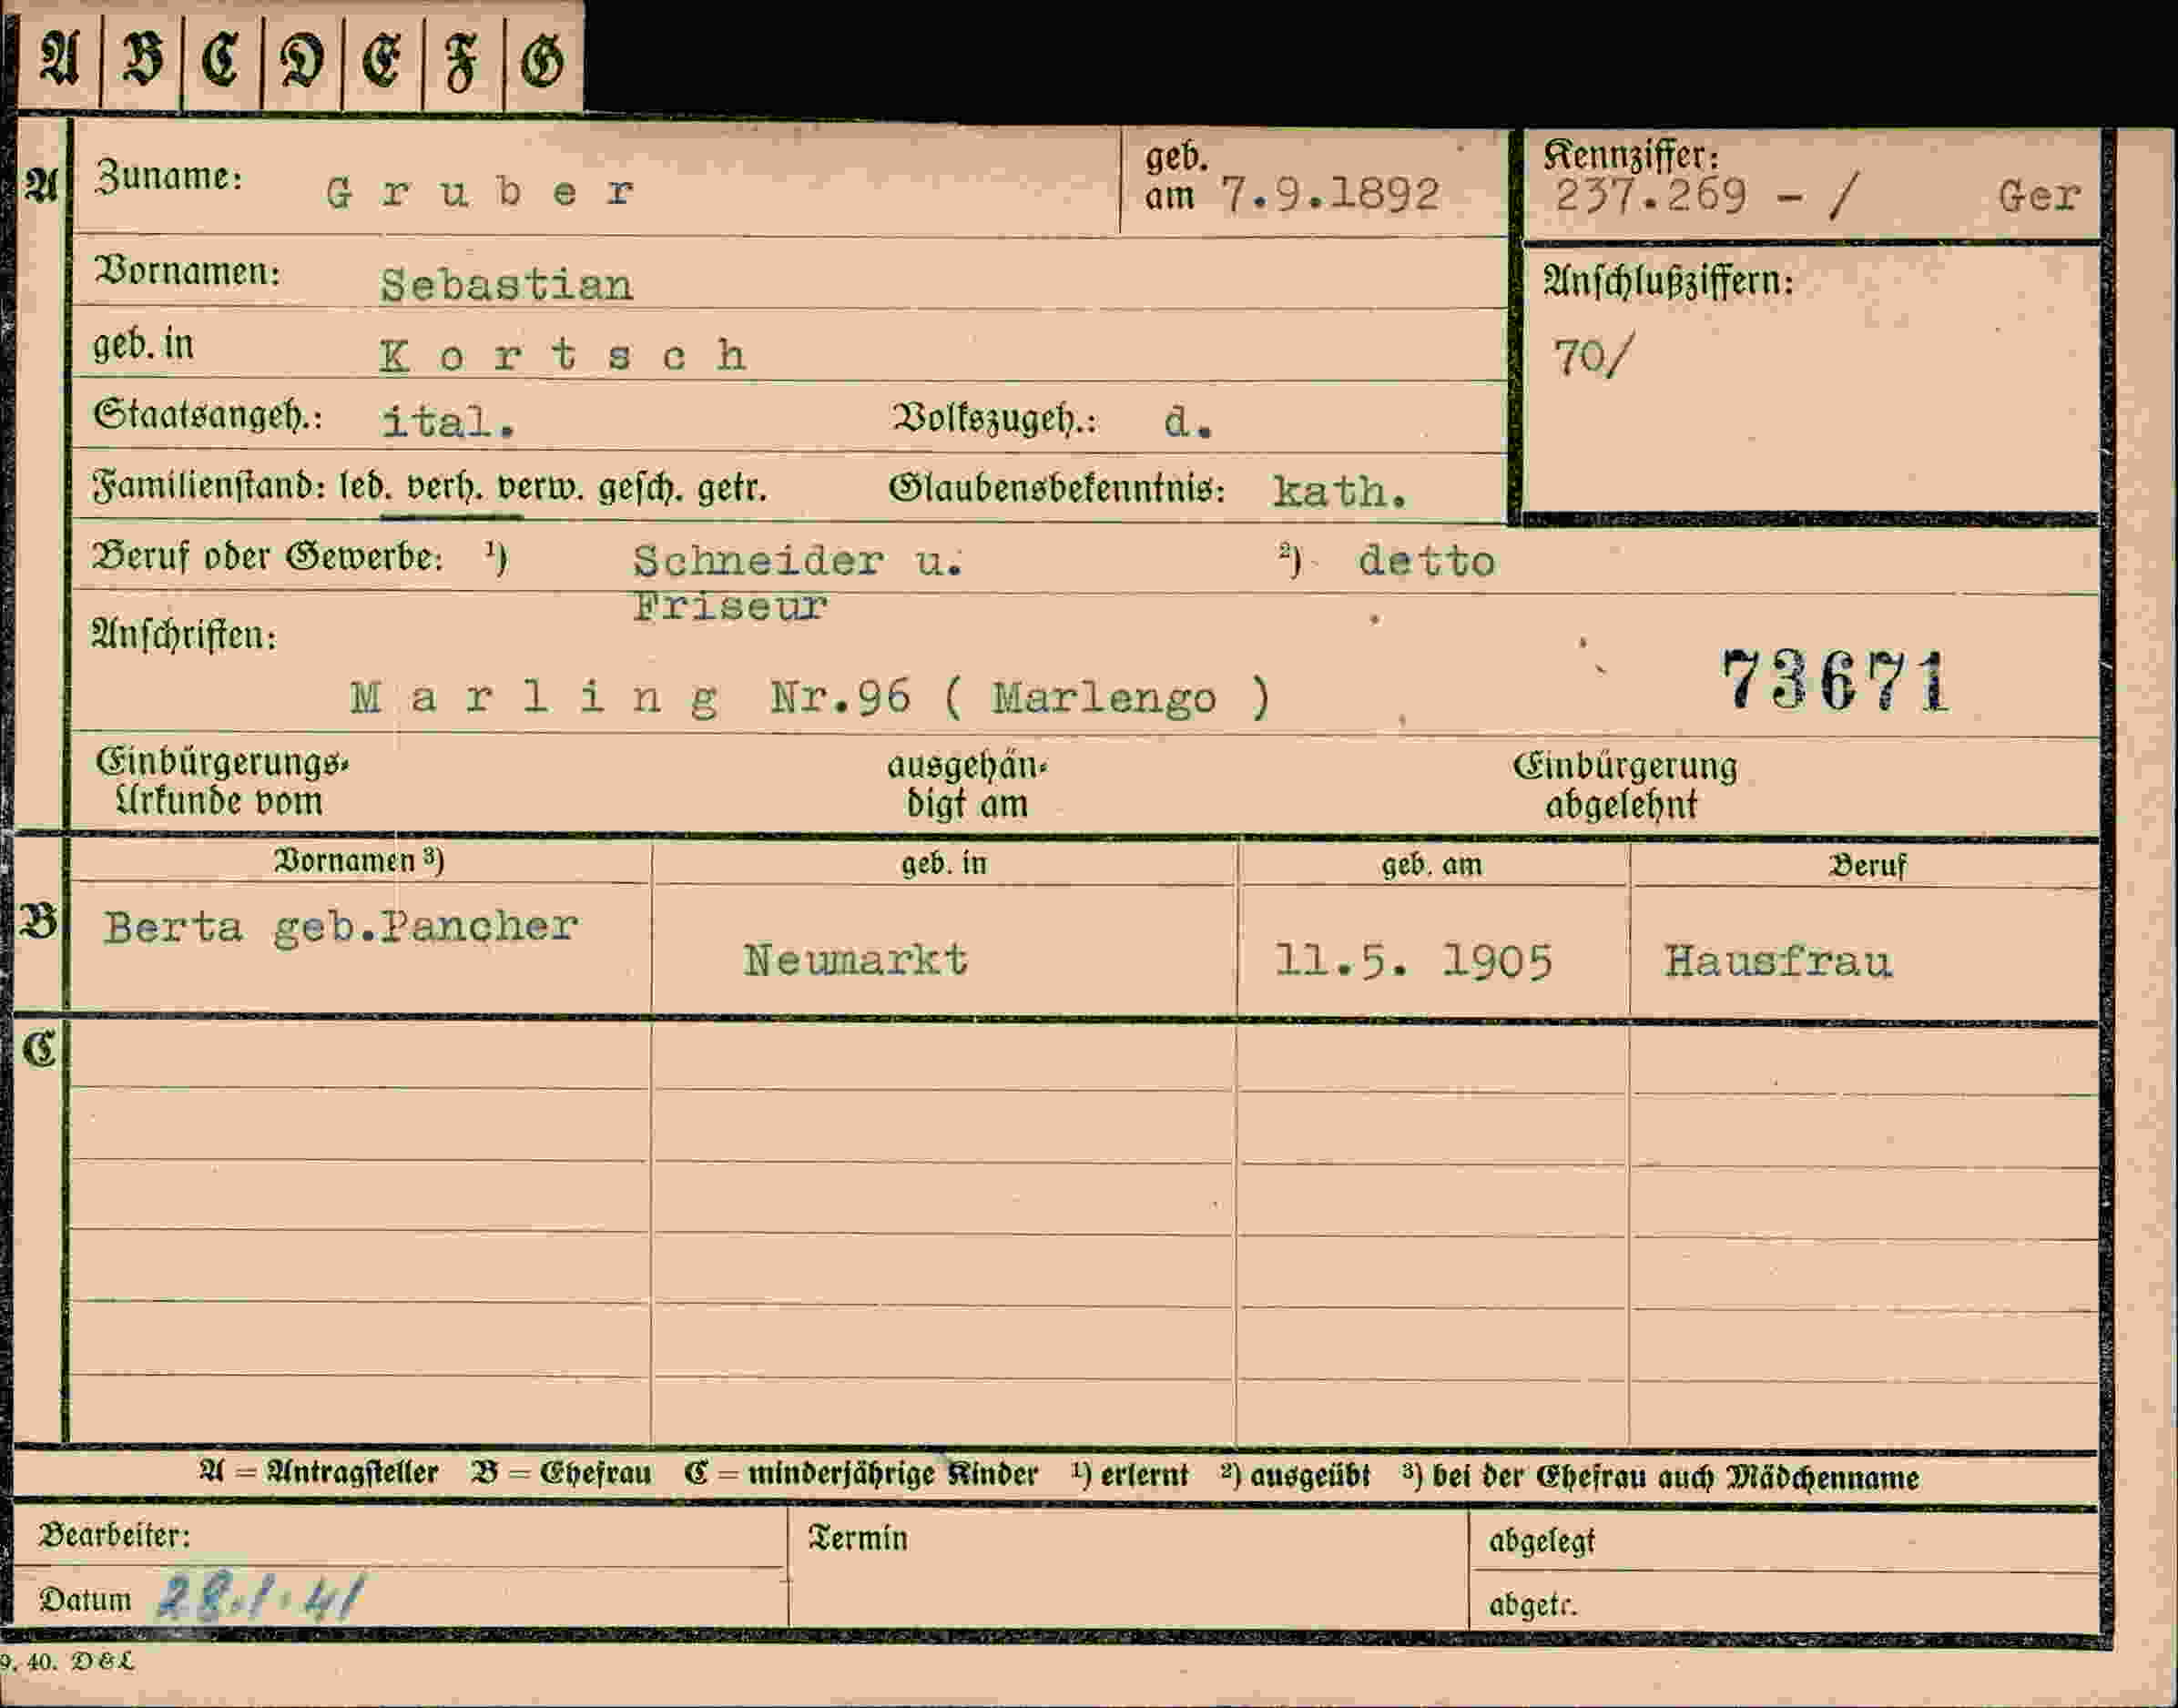 A B C D E F G
A Zuname: G r u b e r geb. am 7.9.1892 Kennziffer: 237.269 - / Ger
Vornamen: Sebastian Anschlußziffern:
geb. in K o r t s c h 70/
Staatsangeh.: ital. Volkszugeh.: d.
Familienstand: led. verh. verw. gesch. getr. Glaubensbekenntnis: kath.
Beruf oder Gewerbe: ¹) Schneider u. ²) detto
Friseur
Anschriften:
M a r l i n g Nr.96 ( Marlengo ) 73671
Einbürgerungs- ausgehän- Einbürgerung
Urkunde vom digt am abgelehnt
Vornamen ³) geb. in geb. am Beruf
B Berta geb.Pancher Neumarkt 11.5. 1905 Hausfrau
C
A = Antragsteller B = Ehefrau C = minderjährige Kinder ¹) erlernt ²) ausgeübt ³) bei der Ehefrau auch Mädchenname
Bearbeiter: Termin abgelegt
Datum 28.1.41 abgetr.
9. 40. D&L